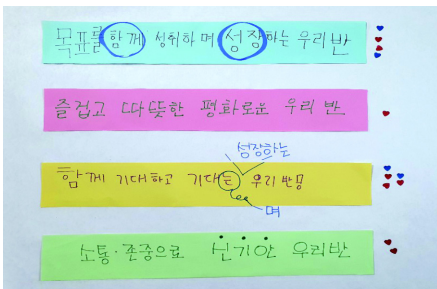 목표를 함께 성취하며 성장하는 우리 반
즐겁고 따뜻한 평화로운 우리 반
성장하는
함께 기대하고 기대는 우리 반!
며
소통·존중으로 신기안 우리반